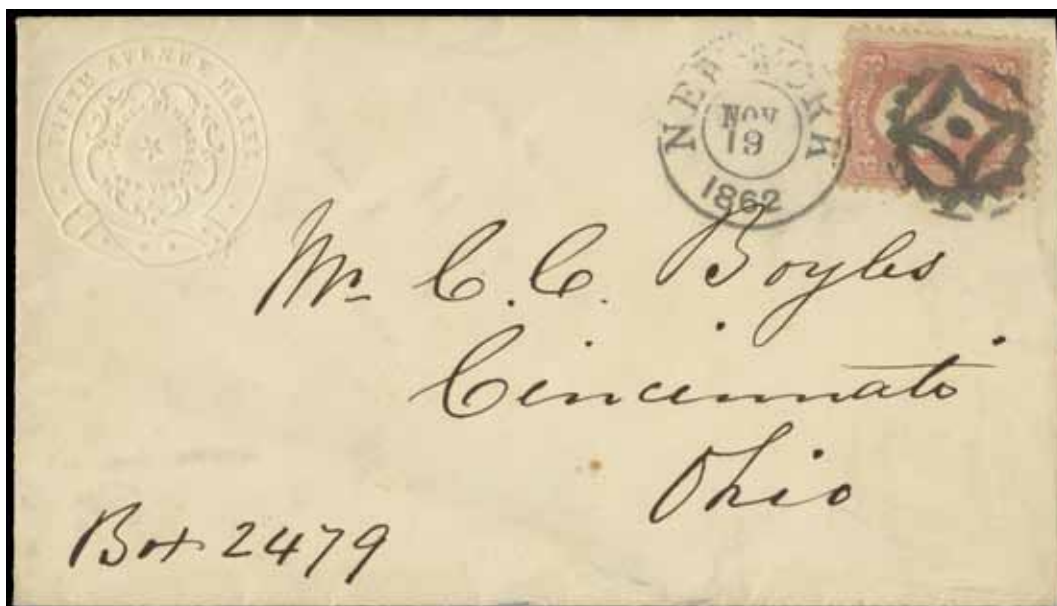 FIFTH AVENUE HOTEL
NEW YORK
NOV
19
1862
3
3
Mr. C. C. Boyles
Cincinnati
Ohio
Box 2479